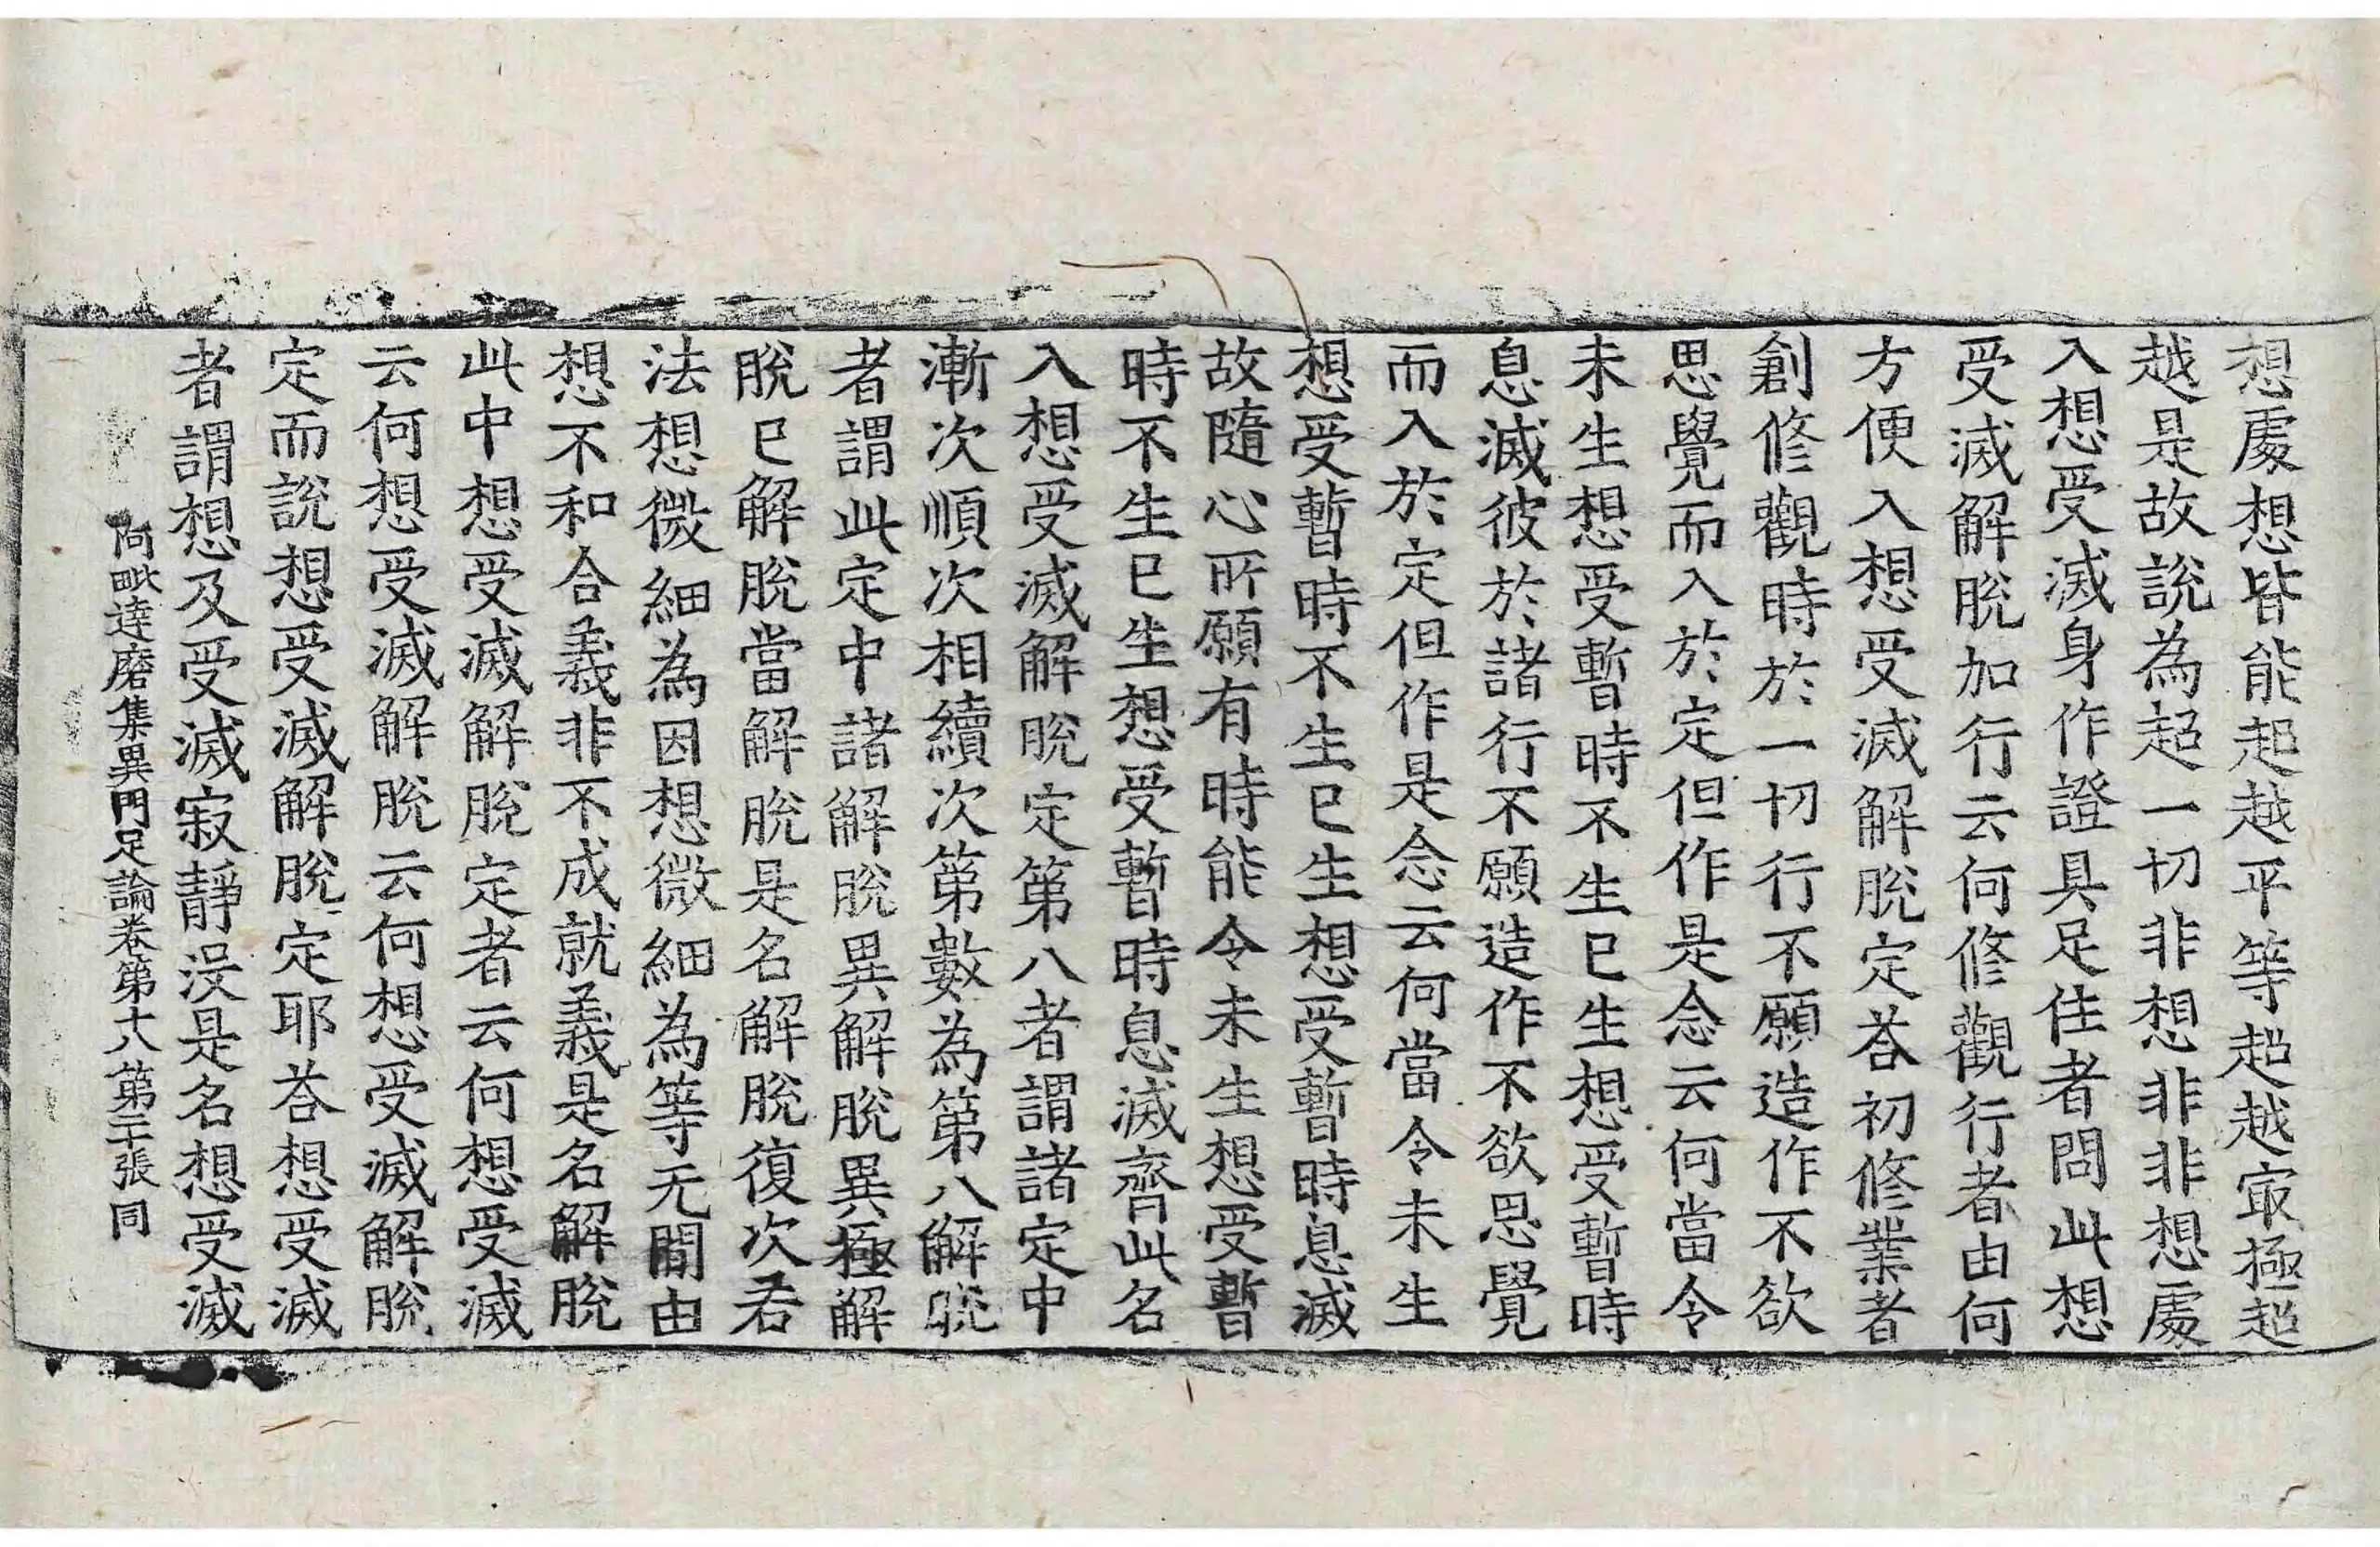 想處想皆能起越平等超越㝡極超
越是故說為超一切非想非非想處
入想受滅身作證具足住者問此想
受滅解脫加行云何修觀行者由何
方便入想受滅解脫定荅初修業者
創修觀時於一切行不願造作不欲
思覺而入於定但作是念云何當令
未生想受暫時不生已生想受暫時
息滅彼於諸行不願造作不欲思覺
而入於定但作是念云何當令未生
想受暫時不生已生想受暫時息滅
故隨心所願有時能令未生想受暫
時不生已生想受暫時息滅齊此名
入想受滅解脫定第八者謂諸定中
漸次順次相續次第數為第八解脫
者謂此定中諸解脫異解脫異極解
脫已解脫當解脫是名解脫復次若
法想微細為因想微細為等无間由
想不和合義非不成就義是名解脫
此中想受滅解脫定者云何想受滅
云何想受滅解脫云何想受滅解脫
定而說想受滅解脫定耶荅想受滅
者謂想及受滅寂靜沒是名想受滅
阿毗達磨集異門足論卷第十八第二十張同